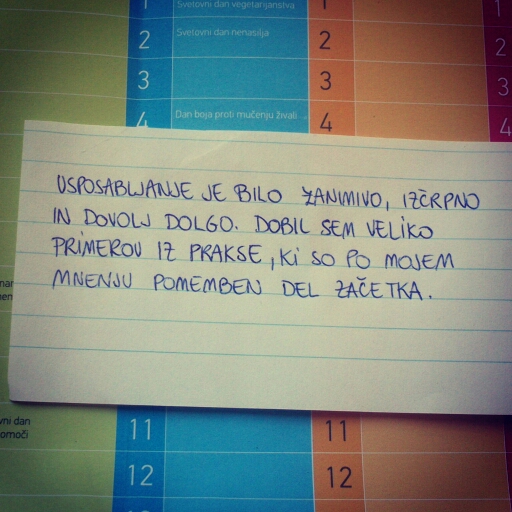 1 Svetovni dan vegetarijanstva 1 1
2 Svetovni dan nenasilja 2 2
3 3 3
4 Dan boja proti mučenju živali 4 4
USPOSABLJANJE JE BILO ZANIMIVO, IZČRPNO
IN DOVOLJ DOLGO. DOBIL SEM VELIKO
PRIMEROV IZ PRAKSE, KI SO PO MOJEM
MNENJU POMEMBEN DEL ZAČETKA.
vni dan
omoči
11 11
12 12